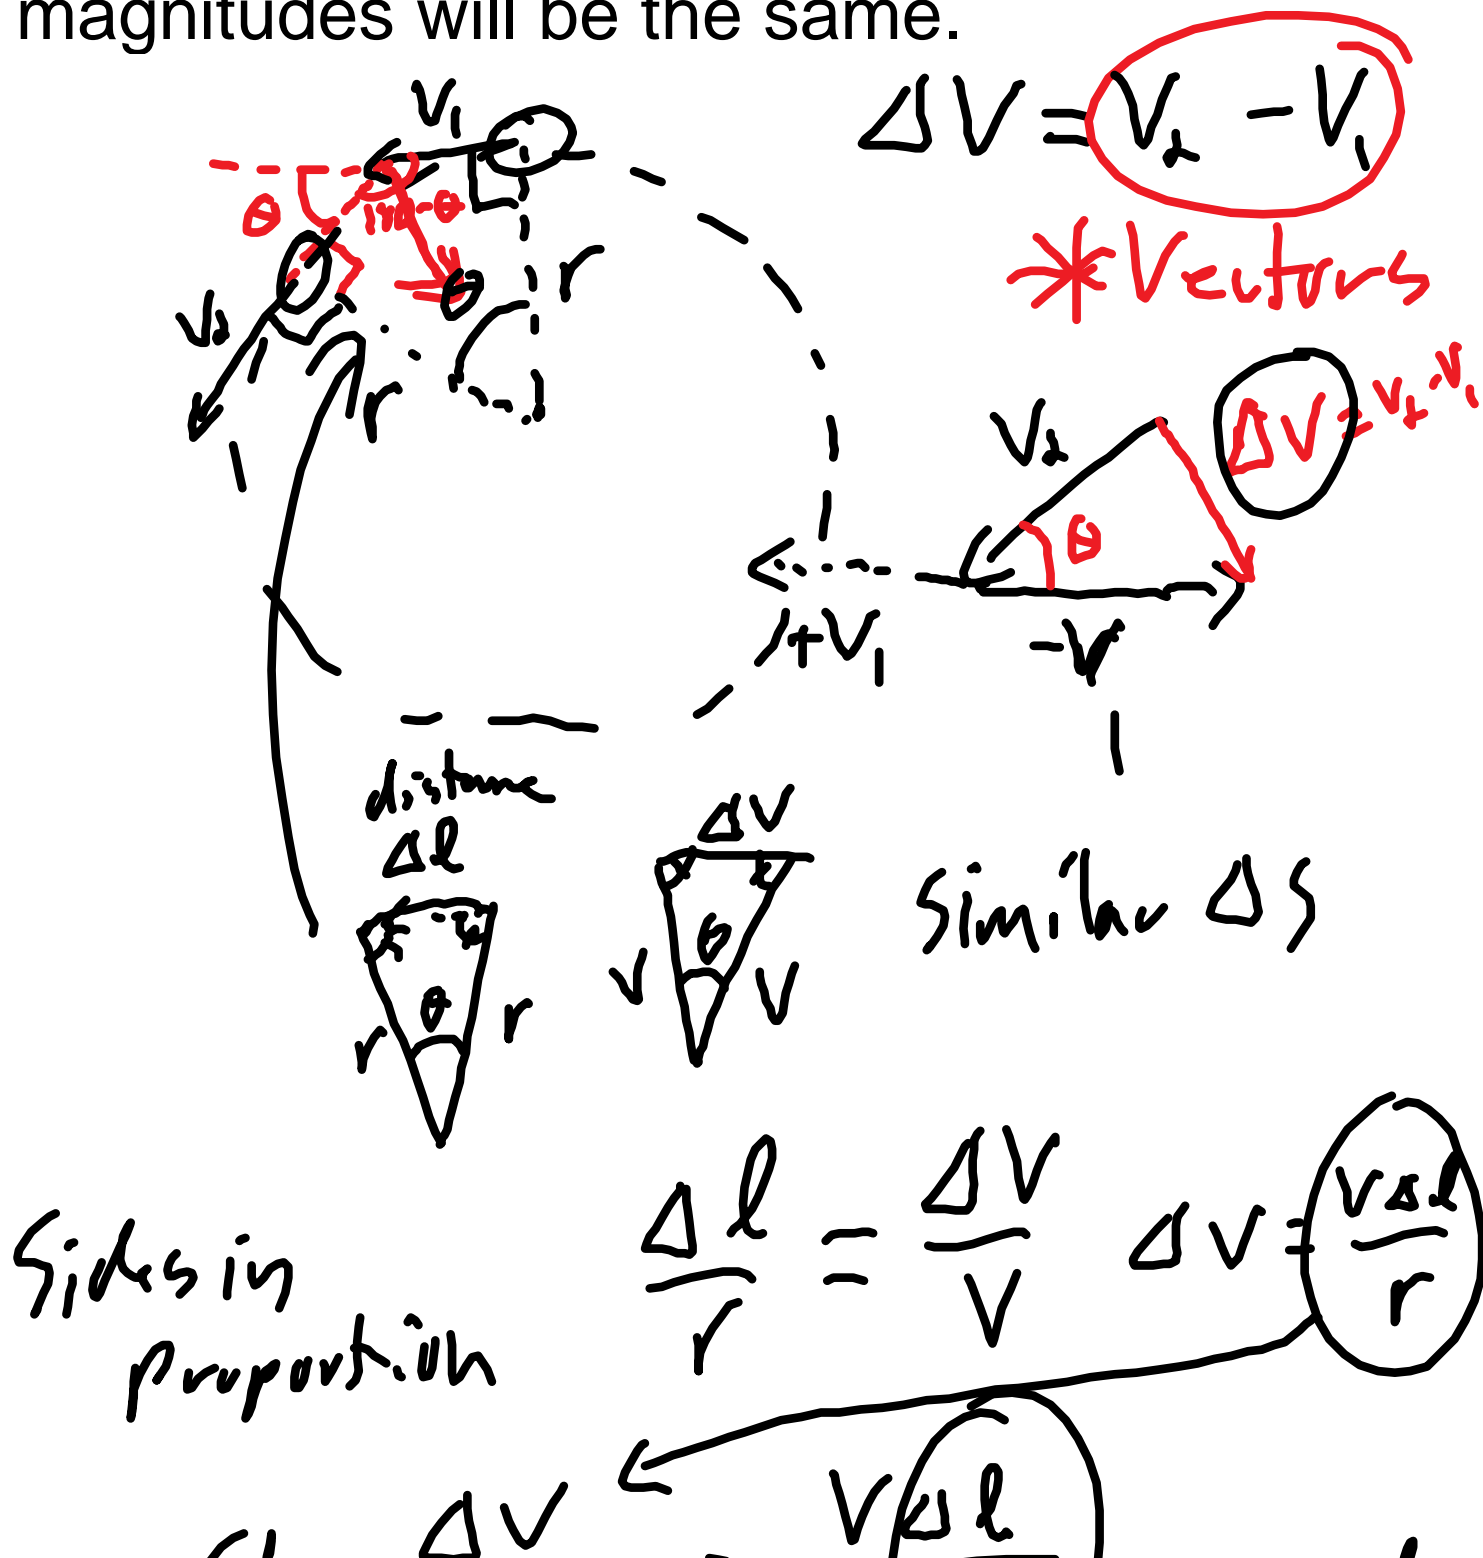 magnitudes will be the same.
V₁
ΔV = V₂ - V₁
* Vectors
θ
180-θ
θ
r
V₂
r
V₂
ΔV = V₂ - V₁
θ
+V₁
-V₁
distance
Δl
ΔV
θ
r
r
θ
V
V
Similar Δs
Sides in
proportion
Δl/r = ΔV/V
ΔV = vΔl/r
ΔV
VΔl